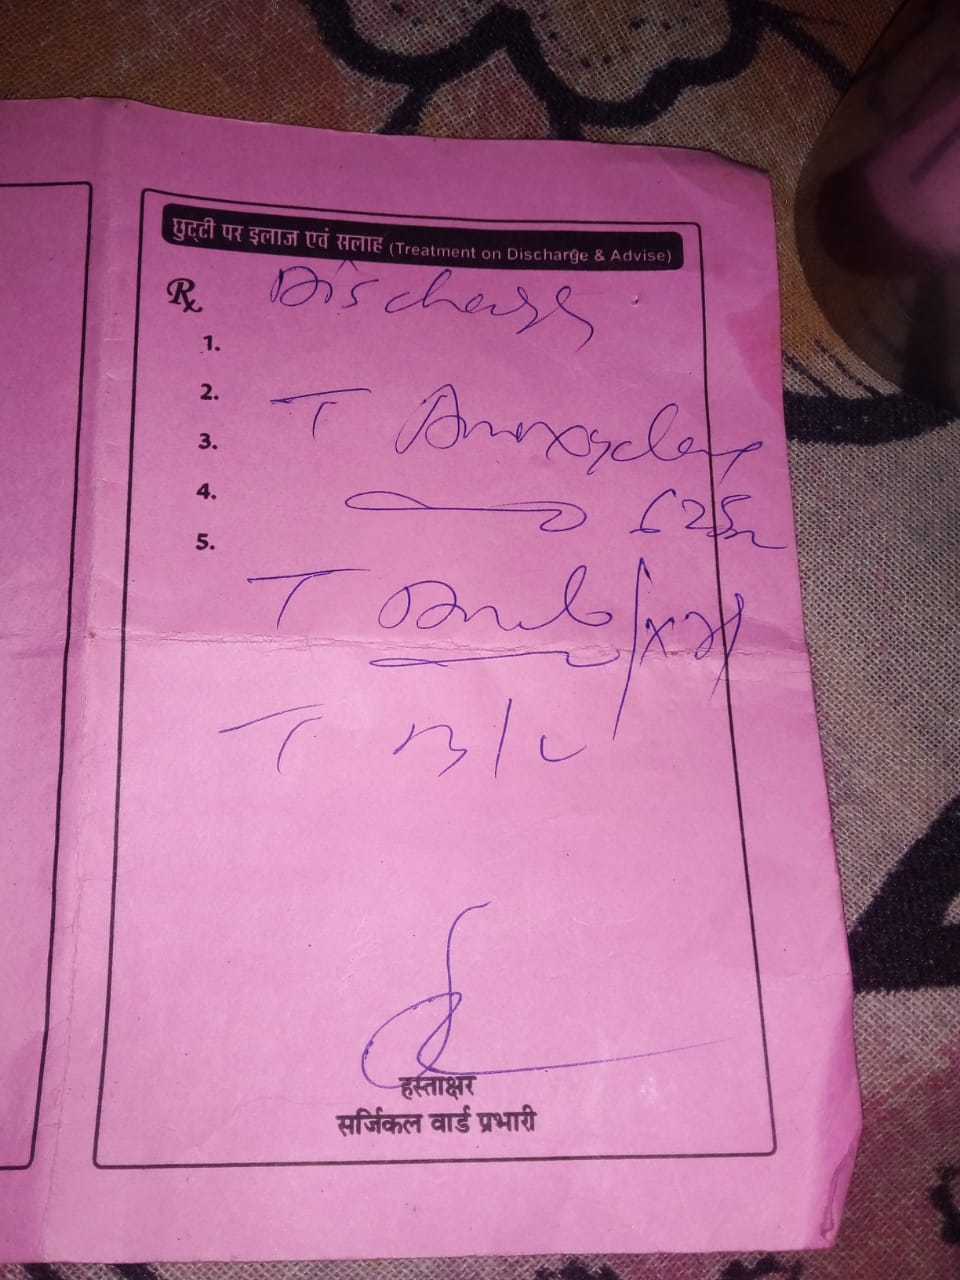 छुट्टी पर इलाज एवं सलाह (Treatment on Discharge & Advise)
Rx Discharge
1.
2.
T Amoxyclav
3.
4.
625m
5.
T
T B/C
हस्ताक्षर
सर्जिकल वार्ड प्रभारी